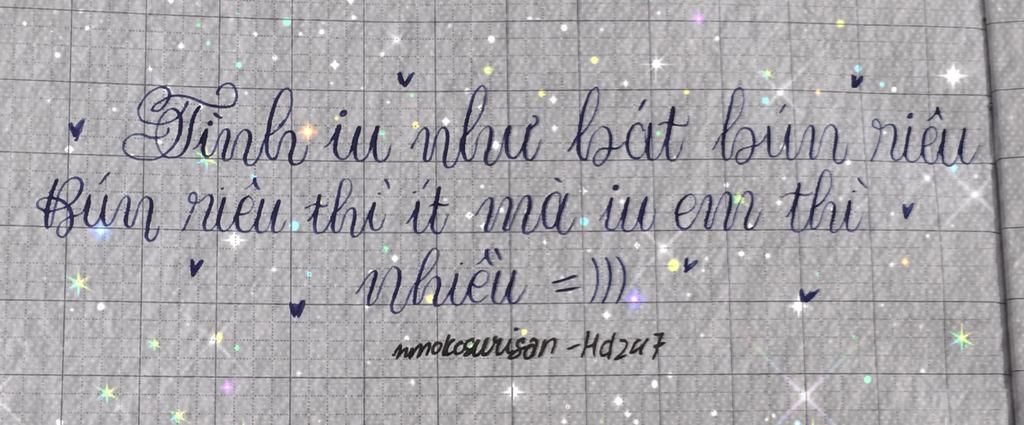 Tình iu như bát bún riêu
Bún riêu thì ít mà iu em thì
nhiều =)))
nmokosurisan -Hdzu7